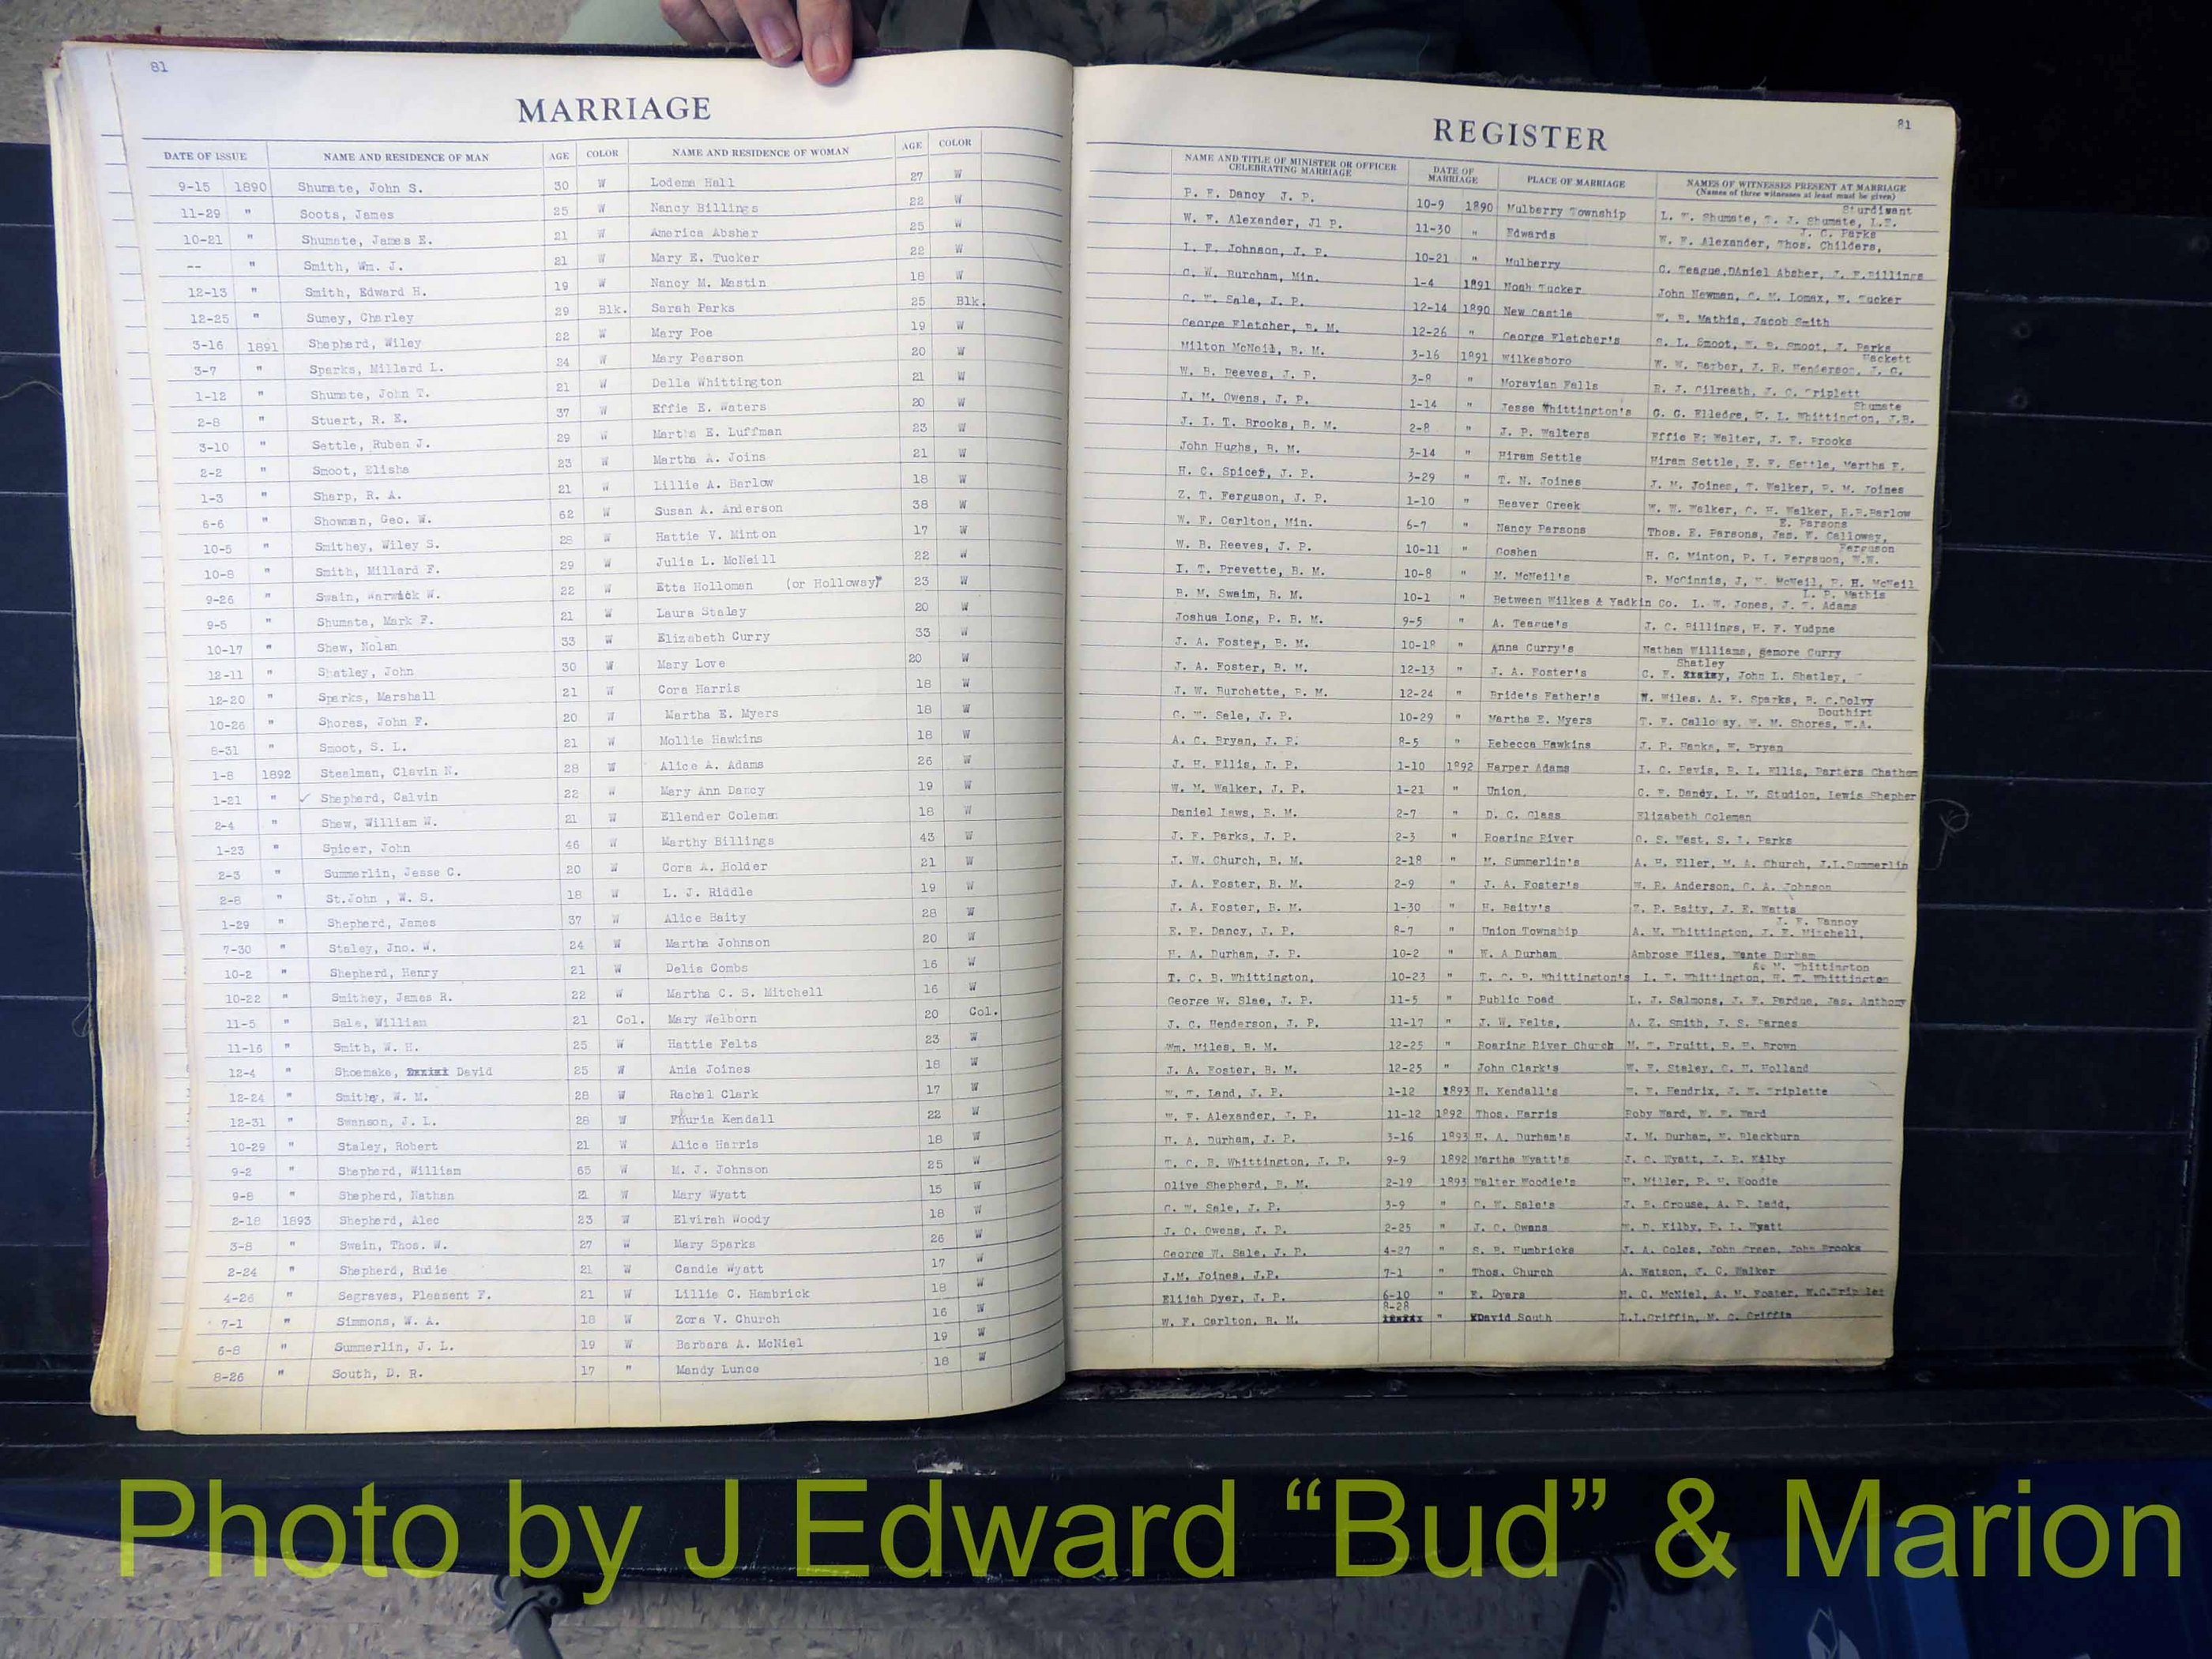 81
MARRIAGE
DATE OF ISSUE NAME AND RESIDENCE OF MAN AGE COLOR NAME AND RESIDENCE OF WOMAN AGE COLOR
9-15 1890 Shumate, John S. 30 W Lodema Hall 27 W
11-29 " Soots, James 25 W Nancy Billings 22 W
10-21 " Shumate, James E. 21 W America Absher 25 W
-- " Smith, Wm. J. 21 W Mary E. Tucker 22 W
12-13 " Smith, Edward H. 19 W Nancy M. Mastin 18 W
12-25 " Sumey, Charley 29 Blk. Sarah Parks 25 Blk.
3-16 1891 Shepherd, Wiley 22 W Mary Poe 19 W
3-7 " Sparks, Millard L. 24 W Mary Pearson 20 W
1-12 " Shumate, John T. 21 W Della Whittington 21 W
2-8 " Stuert, R. E. 37 W Effie E. Waters 20 W
3-10 " Settle, Ruben J. 29 W Martha E. Luffman 23 W
2-2 " Smoot, Elisha 23 W Martha A. Joins 21 W
1-3 " Sharp, R. A. 21 W Lillie A. Barlow 18 W
6-6 " Showman, Geo. W. 62 W Susan A. Anderson 38 W
10-5 " Smithey, Wiley S. 28 W Hattie V. Minton 17 W
10-8 " Smith, Millard F. 29 W Julia L. McNeill 22 W
9-26 " Swain, Warwick W. 22 W Etta Holloman (or Holloway) 23 W
9-5 " Shumate, Mark F. 21 W Laura Staley 20 W
10-17 " Shew, Nolan 33 W Elizabeth Curry 33 W
12-11 " Shatley, John 30 W Mary Love 20 W
12-20 " Sparks, Marshall 21 W Cora Harris 18 W
10-26 " Shores, John F. 20 W Martha E. Myers 18 W
8-31 " Smoot, S. L. 21 W Mollie Hawkins 18 W
1-8 1892 Stealman, Clavin N. 28 W Alice A. Adams 26 W
1-21 " ✓ Shepherd, Calvin 22 W Mary Ann Dancy 19 W
2-4 " Shew, William W. 21 W Ellender Coleman 18 W
1-23 " Spicer, John 46 W Marthy Billings 43 W
2-3 " Summerlin, Jesse C. 20 W Cora A. Holder 21 W
2-8 " St.John , W. S. 18 W L. J. Riddle 19 W
1-29 " Shepherd, James 37 W Alice Baity 28 W
7-30 " Staley, Jno. W. 24 W Martha Johnson 20 W
10-2 " Shepherd, Henry 21 W Delia Combs 16 W
10-22 " Smithey, James R. 22 W Martha C. S. Mitchell 16 W
11-5 " Sale, William 21 Col. Mary Welborn 20 Col.
11-16 " Smith, W. H. 25 W Hattie Felts 23 W
12-4 " Shoemake, David 25 W Ania Joines 18 W
12-24 " Smithy, W. M. 28 W Rachel Clark 17 W
12-31 " Swanson, J. L. 28 W Fhuria Kendall 22 W
10-29 " Staley, Robert 21 W Alice Harris 18 W
9-2 " Shepherd, William 65 W M. J. Johnson 25 W
9-8 " Shepherd, Nathan 21 W Mary Wyatt 15 W
2-18 1893 Shepherd, Alec 23 W Elvirah Woody 18 W
3-8 " Swain, Thos. W. 27 W Mary Sparks 26 W
2-24 " Shepherd, Rudie 21 W Candie Wyatt 17 W
4-26 " Segraves, Pleasent F. 21 W Lillie C. Hambrick 18 W
7-1 " Simmons, W. A. 18 W Zora V. Church 16 W
6-8 " Summerlin, J. L. 19 W Barbara A. McNiel 19 W
8-26 " South, D. R. 17 " Mandy Lunce 18 W
81
REGISTER
NAME AND TITLE OF MINISTER OR OFFICER CELEBRATING MARRIAGE DATE OF MARRIAGE PLACE OF MARRIAGE NAMES OF WITNESSES PRESENT AT MARRIAGE
(Names of three witnesses at least must be given)
Sturdivant
P. E. Dancy J. P. 10-9 1890 Mulberry Township L. W. Shumate, T. J. Shumate, L.E.
J. C. Parks
W. F. Alexander, Jl P. 11-30 " Edwards W. F. Alexander, Thos. Childers,
L. F. Johnson, J. P. 10-21 " Mulberry C. Teague,DAniel Absher, J. F.Billings
C. W. Burcham, Min. 1-4 1891 Noah Tucker John Newman, C. M. Lomax, W. Tucker
C. W. Sale, J. P. 12-14 1890 New Castle W. R. Mathis, Jacob Smith
George Fletcher, B. M. 12-26 " George Fletcher's S. L. Smoot, W. B. Smoot, J. Parks
Hackett
Milton McNeil, B. M. 3-16 1891 Wilkesboro W. W. Barber, J. R. Henderson, J. G.
W. B. Reeves, J. P. 3-8 " Moravian Falls R. J. Gilreath, J. C. Triplett
Shumate
J. M. Owens, J. P. 1-14 " Jesse Whittington's G. G. Elledge, W. L. Whittington, J.B.
J. I. T. Brooks, B. M. 2-8 " J. P. Walters Effie E; Walter, J. F. Brooks
John Hughs, B. M. 3-14 " Hiram Settle Hiram Settle, E. F. Settle, Martha E.
H. C. Spicer, J. P. 3-29 " T. N. Joines J. M. Joines, T. Walker, P. M. Joines
Z. T. Ferguson, J. P. 1-10 " Beaver Creek W. W. Walker, C. H. Walker, R.P.Barlow
E. Parsons
W. F. Carlton, Min. 6-7 " Nancy Parsons Thos. E. Parsons, Jas. W. Calloway,
Ferguson
W. B. Reeves, J. P. 10-11 " Goshen H. C. Minton, P. I. Ferguson, W.W.
I. T. Prevette, B. M. 10-8 " M. McNeil's P. McGinnis, J, F. McNeil, P. H. McNeil
L. P. Mathis
B. M. Swaim, B. M. 10-1 " Between Wilkes & Yadkin Co. L. W. Jones, J. T. Adams
Joshua Long, P. B. M. 9-5 " A. Teague's J. C. Billings, H. F. Yudpne
J. A. Foster, B. M. 10-18 " Anna Curry's Nathan Williams, Semore Curry
Shatley
J. A. Foster, B. M. 12-13 " J. A. Foster's C. F. John L. Shatley,
J. W. Burchette, B. M. 12-24 " Bride's Father's W. Wiles. A. F. Sparks, B. C.Dolvy
Douthirt
C. W. Sale, J. P. 10-29 " Martha E. Myers T. F. Calloway, W. M. Shores, W.A.
A. C. Bryan, J. P. 8-5 " Rebecca Hawkins J. P. Hanks, W. Bryan
J. H. Ellis, J. P. 1-10 1892 Harper Adams I. C. Bevis, R. L. Ellis, Parters Chatham
W. M. Walker, J. P. 1-21 " Union, C. F. Dandy, L. M. Studion, Lewis Shepher
Daniel Laws, B. M. 2-7 " D. C. Class Elizabeth Coleman
J. F. Parks, J. P. 2-3 " Roaring River C. S. West, S. L. Parks
J. W. Church, B. M. 2-18 " M. Summerlin's A. H. Eller, M. A. Church, J.I.Summerlin
J. A. Foster, B. M. 2-9 " J. A. Foster's W. R. Anderson, C. A. Johnson
J. A. Foster, B. M. 1-30 " H. Baity's T. P. Baity, J. E. Watts
J. F. Vannoy
E. E. Dancy, J. P. 8-7 " Union Township A. M. Whittington, J. E. Mitchell,
H. A. Durham, J. P. 10-2 " W. A Durham Ambrose Wiles, Wante Durham
M. Whittington
T. C. B. Whittington, 10-23 " T. C. B. Whittington's L. F. Whittington, H. T. Whittington
George W. Slae, J. P. 11-5 " Public Road L. J. Salmons, J. F. Pardue, Jas. Anthony
J. C. Henderson, J. P. 11-17 " J. W. Felts, A. Z. Smith, J. S. Barnes
Wm. Miles, B. M. 12-25 " Roaring River Church M. T. Pruitt, R. H. Brown
J. A. Foster, B. M. 12-25 " John Clark's W. F. Staley, C. H. Holland
W. T. Land, J. P. 1-12 1893 H. Kendall's W. E. Hendrix, J. W. Triplette
W. F. Alexander, J. P. 11-12 1892 Thos. Harris Roby Ward, W. E. Ward
H. A. Durham, J. P. 3-16 1893 H. A. Durham's J. M. Durham, M. Blackburn
T. C. B. Whittington, J. P. 9-9 1892 Martha Wyatt's J. C. Wyatt, J. B. Kilby
Olive Shepherd, B. M. 2-19 1893 Walter Woodie's H. Miller, P. H. Woodie
C. W. Sale, J. P. 3-9 " C. W. Sale's J. B. Crouse, A. P. Ladd,
J. C. Owens, J. P. 2-25 " J. C. Owens W. D. Kilby, P. L. Wyatt
George W. Sale, J. P. 4-27 " S. B. Humbricks J. A. Coles, John Green, John Brooks
J.M. Joines, J.P. 7-1 " Thos. Church A. Watson, J. C. Walker
Elijah Dyer, J. P. 6-10 " E. Dyers M. C. McNiel, A. M. Foster,
8-28
W. F. Carlton, B. M. " David South L.L.Griffin, M. C. Griffin
Photo by J Edward “Bud” & Marion